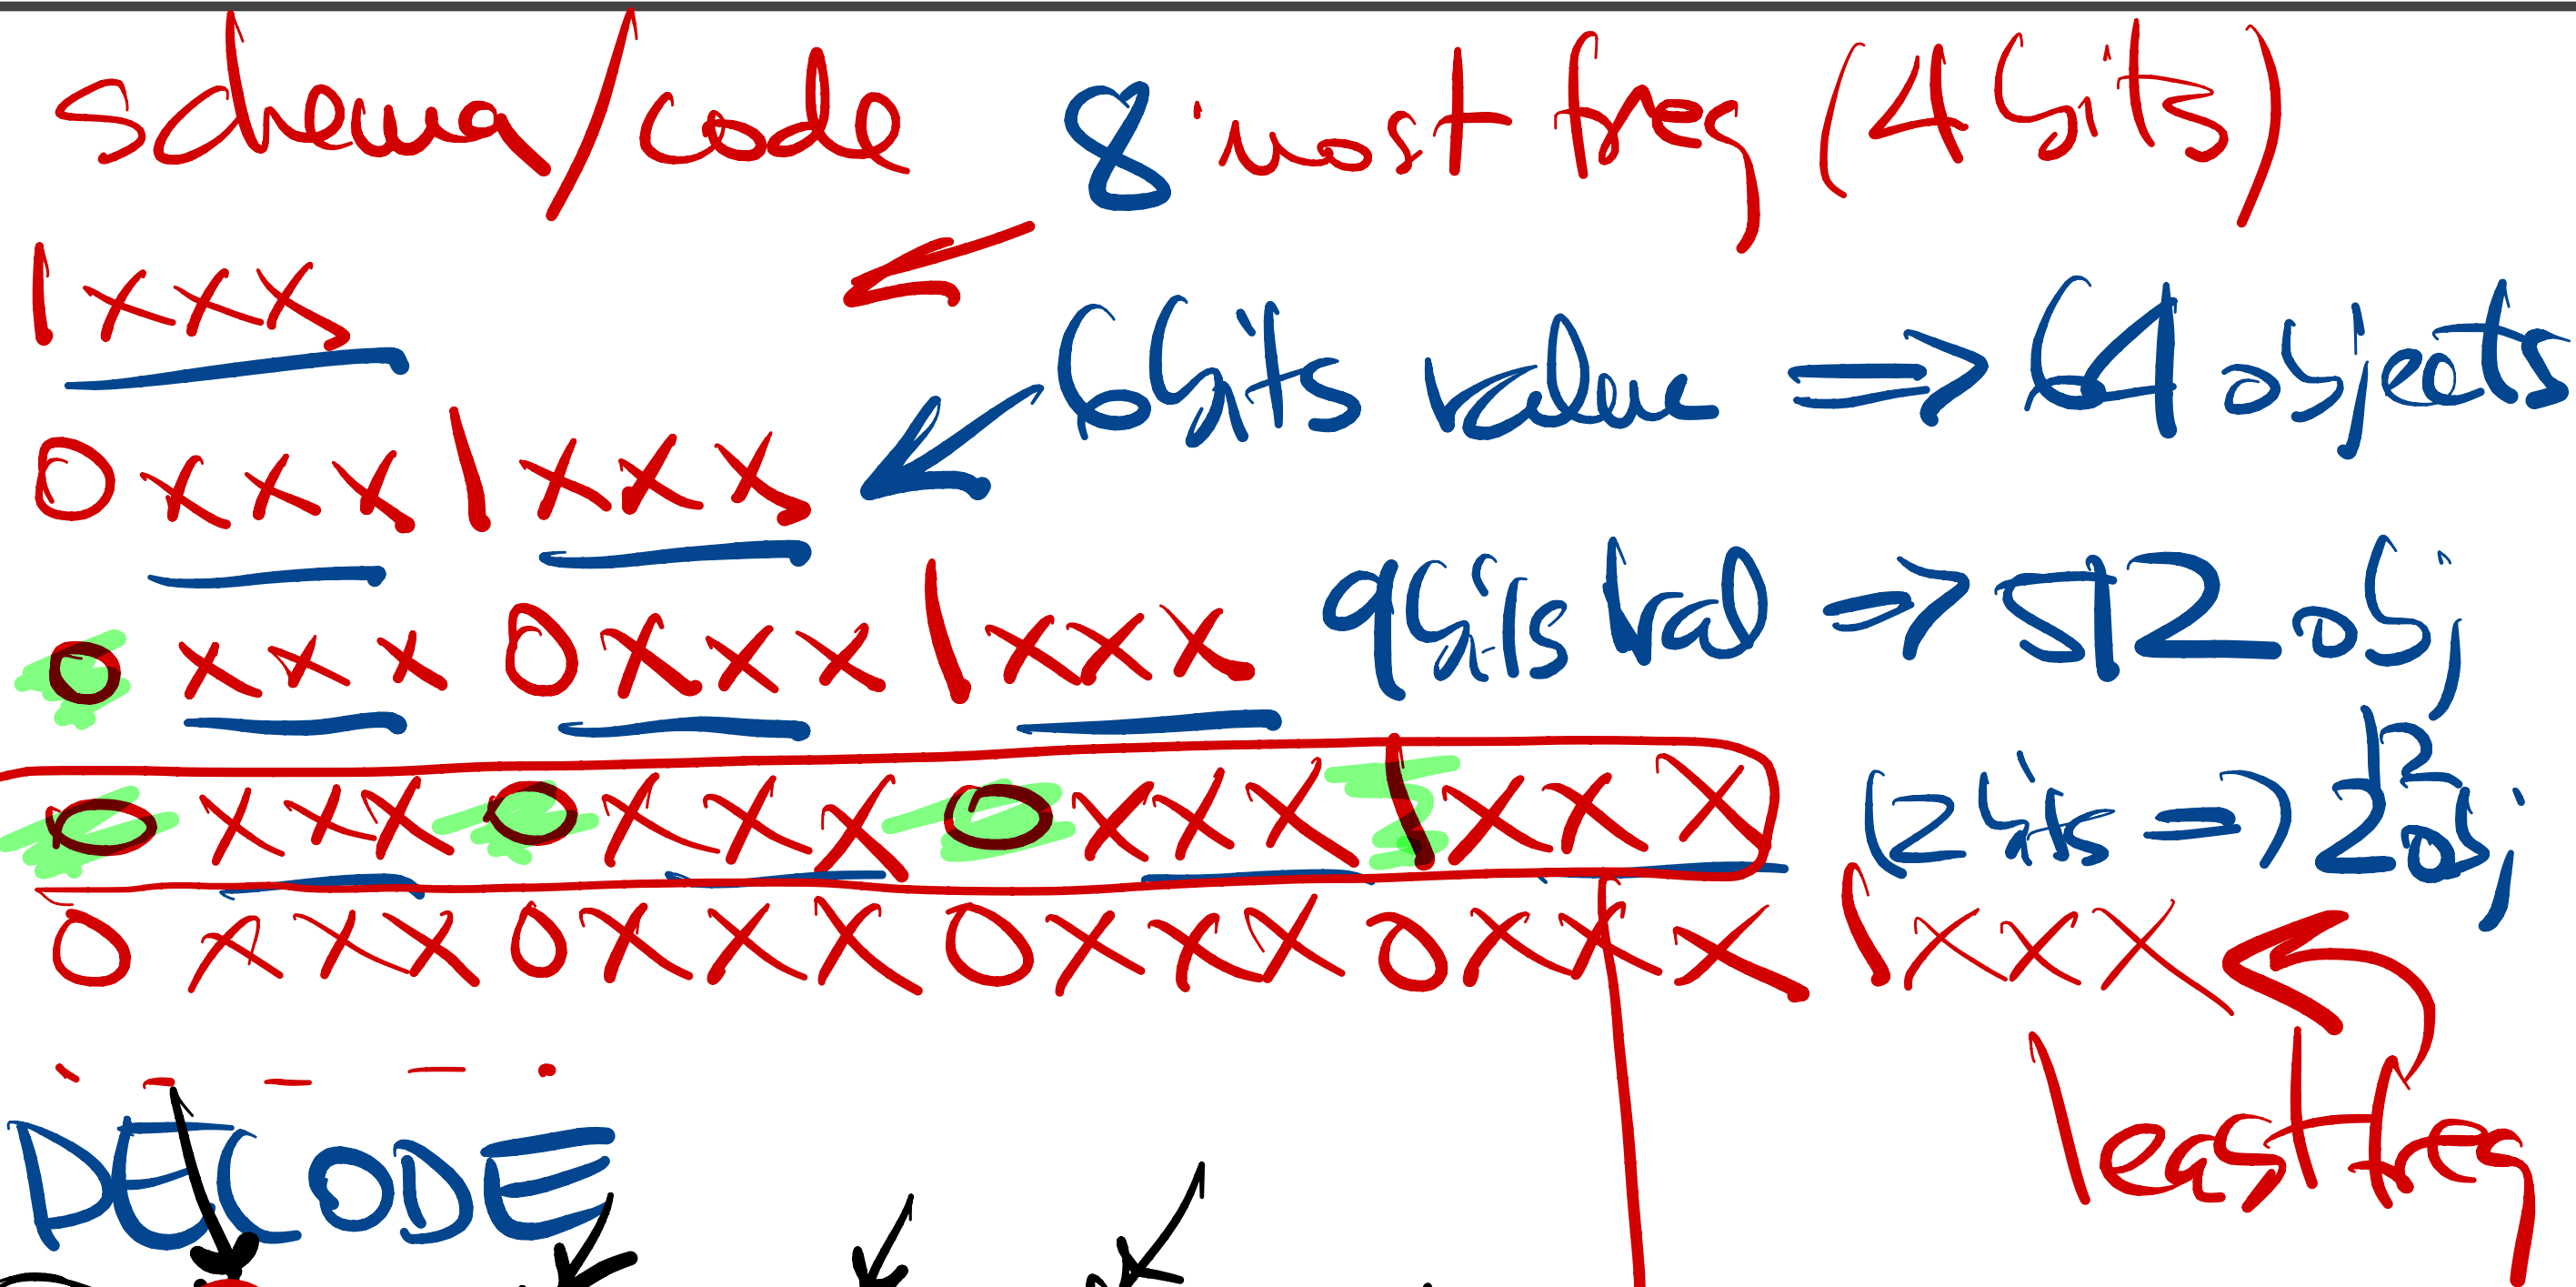 schema/code 8 most freq (4 bits)
1xxx
6bits value => 64 objects
0xxx1xxx
9bits val => 512 obj
0xxx0xxx1xxx
0xxx0xxx0xxx1xxx 12bits => 2^12 obj
0xxx0xxx0xxx0xxx1xxx
least freq
DECODE